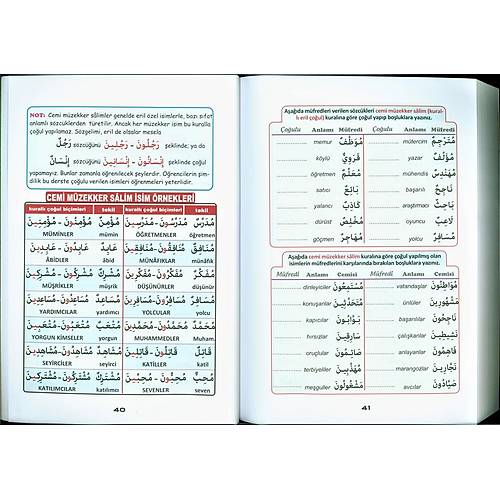 NOT: Cemi müzekker sâlimler genelde eril özel isimlerle, bazı sıfat
anlamlı sözcüklerden türetilir. Ancak her müzekker isim bu kuralla
çoğul yapılamaz. Sözgelimi, eril de olsalar mesela
رَجُلٌ sözcüğünü رَجُلُونَ - رَجُلِينَ şeklinde; ya da
إِنْسَانٌ sözcüğünü إِنْسَانُونَ - إِنْسَانِينَ şekilde çoğul
yapamayız. Bunlar zamanla öğrenilecek şeylerdir. Öğrencilerin şim-
dilik bu derste çoğulu verilen isimleri öğrenmeleri yeterlidir.
CEMİ MÜZEKKER SÂLİM İSİM ÖRNEKLERİ
kurallı çoğul biçimleri tekil kurallı çoğul biçimleri tekil
مُؤْمِنُونَ - مُؤْمِنِينَ مُؤْمِنٌ مُدَرِّسُونَ - مُدَرِّسِينَ مُدَرِّسٌ
MÜMİNLER mümin ÖĞRETMENLER öğretmen
عَابِدُونَ - عَابِدِينَ عَابِدٌ مُنَافِقُونَ - مُنَافِقِينَ مُنَافِقٌ
ÂBİDLER âbid MÜNÂFIKLAR münâfık
مُشْرِكُونَ - مُشْرِكِينَ مُشْرِكٌ مُفَكِّرُونَ - مُفَكِّرِينَ مُفَكِّرٌ
MÜŞRİKLER müşrik DÜŞÜNÜRLER düşünür
مُسَاعِدُونَ - مُسَاعِدِينَ مُسَاعِدٌ مُسَافِرُونَ - مُسَافِرِينَ مُسَافِرٌ
YARDIMCILAR yardımcı YOLCULAR yolcu
مُتْعَبُونَ - مُتْعَبِينَ مُتْعَبٌ مُحَمَّدُونَ - مُحَمَّدِينَ مُحَمَّدٌ
YORGUN KİMSELER yorgun MUHAMMEDLER Muham.
مُشَاهِدُونَ - مُشَاهِدِينَ مُشَاهِدٌ قَاتِلُونَ - قَاتِلِينَ قَاتِلٌ
SEYİRCİLER seyirci KATİLLER katil
مُشْتَرِكُونَ - مُشْتَرِكِينَ مُشْتَرِكٌ مُحِبُّونَ - مُحِبِّينَ مُحِبٌّ
KATILIMCILAR katılımcı SEVENLER seven
40
Aşağıda müfredleri verilen sözcükleri cemi müzekker sâlim (kural-
lı eril çoğul) kuralına göre çoğul yapıp boşluklara yazınız.
Çoğulu Anlamı Müfredi Çoğulu Anlamı Müfredi
memur مُوَظَّفٌ mütercim مُتَرْجِمٌ
köylü قَرَوِيٌّ yazar مُؤَلِّفٌ
öğretmen مُعَلِّمٌ mühendis مُهَنْدِسٌ
satıcı بَائِعٌ başarılı نَاجِحٌ
yalancı كَاذِبٌ araştırmacı بَاحِثٌ
dürüst مُخْلِصٌ oyuncu لَاعِبٌ
göçmen مُهَاجِرٌ yolcu مُسَافِرٌ
Aşağıda cemi müzekker sâlim kuralına göre çoğul yapılmış olan
isimlerin müfredlerini karşılarında bırakılan boşluklara yazınız.
Müfredi Anlamı Cemisi Müfredi Anlamı Cemisi
dinleyiciler مُسْتَمِعُونَ vatandaşlar مُوَاطِنُونَ
konuşanlar مُتَحَدِّثِينَ ünlüler مَشْهُورِينَ
kapıcılar بَوَّابُونَ çalışkanlar
hırsızlar سَارِقِينَ çalışkanlar نَشِيطِينَ
oruçlular صَائِمُونَ anlayanlar فَاهِمُونَ
terbiyeliler مُهَذَّبِينَ marangozlar نَجَّارِينَ
meşguller مَشْغُولُونَ avcılar صَيَّادُونَ
41